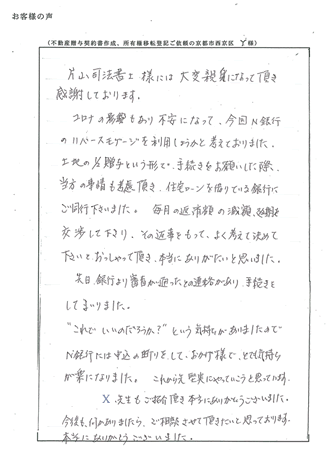 お客様の声
(不動産贈与契約書作成、所有権移転登記ご依頼の京都市西京区 Y様)
片山司法書士様には大変親身になって頂き
感謝しております。
コロナの影響もあり不安になって、今回N銀行
のリバースモゲージを利用しようかと考えておりました。
土地の 贈与という形で、手続きをお願いした際、
当方の事情も考慮頂き、住宅ローンを借りている銀行に
ご同行下さいました。毎月の返済額の減額、
交渉して下さり、その返事をもって、よく考えて決めて
下さいとおっしゃって頂き、本当にありがたいと思いました。
先日、銀行より審査が通ったとの連絡があり、手続きを
してまいりました。
"これでいいのだろうか?"という気持ちがありましたので
N銀行には申込の断りをして、おかげ様で、とても気持ち
が楽になりました。これから先堅実にやっていこうと思っています。
X.先生もご紹介頂き本当にありがとうございました。
今後も、何かありましたら、ご相談させて頂きたいと思っております。
本当にありがとうございました。